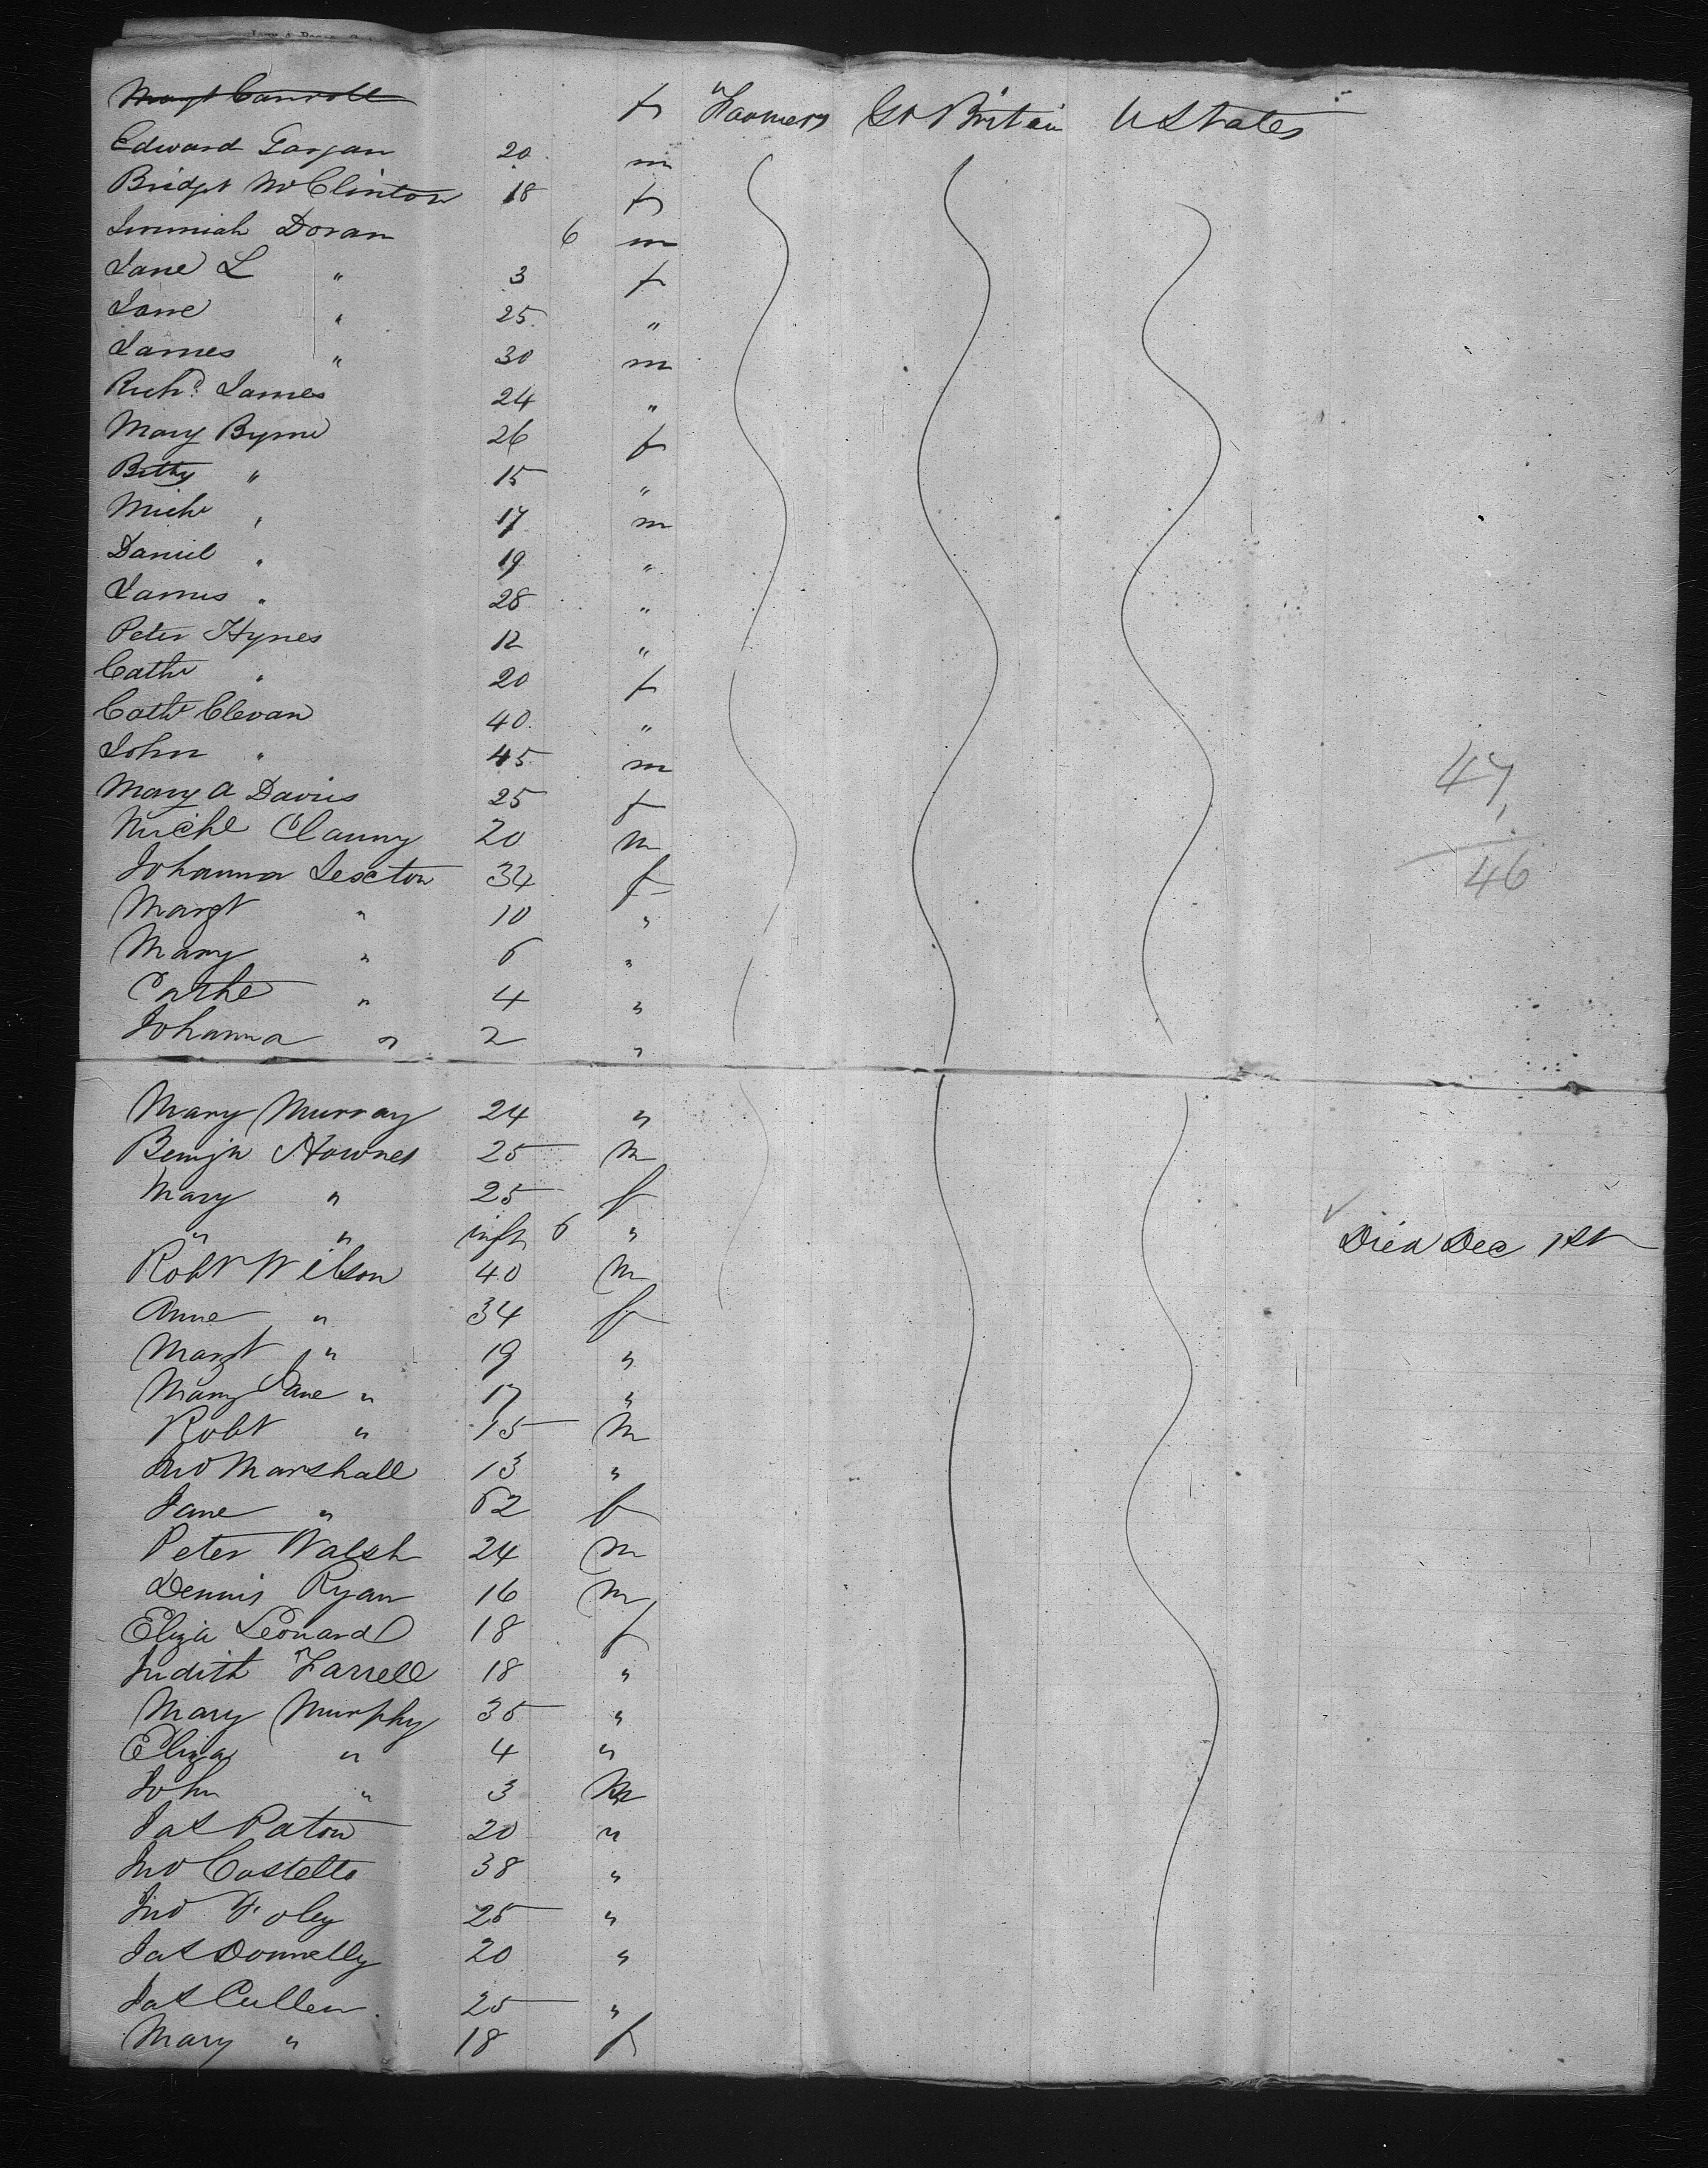 Margt Carroll f Farmers Gt Britain U States
Edward Gargan 20 m
Bridget McClinton 18 f
Jeremiah Doran 6 m
Jane L " 3 f
Jane " 25 "
James " 30 m
Richd James 24 "
Mary Byrne 26 f
Betty " 15 "
Michl " 17 m
Daniel " 19 "
James " 28 "
Peter Hynes 12 "
Cathe " 20 f
Cathe Clevan 40 "
John " 45 m
Mary A Davies 25 f
Michl Clanny 20 m
Johanna Sexton 34 f
Margt " 10 "
Mary " 6 "
Cathe " 4 "
Johanna " 2 "
47
46
Mary Murray 24 "
Benjn Hownes 25 m
Mary " 25 f
" " inft 6 " Died Dec 1st
Robt Wilson 40 m
Anne " 34 f
Margt " 19 "
Mary Jane " 17 "
Robt " 15 m
Jno Marshall 13 "
Jane " 62 f
Peter Walsh 24 m
Dennis Ryan 16 m
Eliza Leonard 18 f
Judith Farrell 18 "
Mary Murphy 35 "
Eliza " 4 "
John " 3 m
Jas Paton 20 "
Jno Costello 38 "
Jno Foley 25 "
Jas Donnelly 20 "
Jas Cullen 25 "
Mary " 18 f